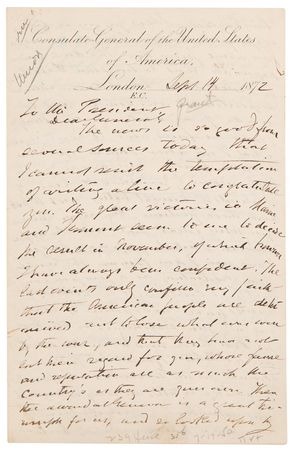 Consulate General of the United States
of America,
London Sept 14 1872
E.C.
To the President
Dear General
Grant
The news is so good from
several sources today that
I cannot resist the temptation
of writing a line to congratulate
you. The great victories in Maine
and Vermont seem to me to decide
the result in November, of which however
I have always been confident. The
last events only confirm my faith
that the American people are deter-
mined not to lose what was won
by the war, and that they have not
lost their regard for you, whose fame
and reputation are as much the
Country's as they are your own. Then
the award at Geneva is a great tri-
umph for us, and so looked upon by